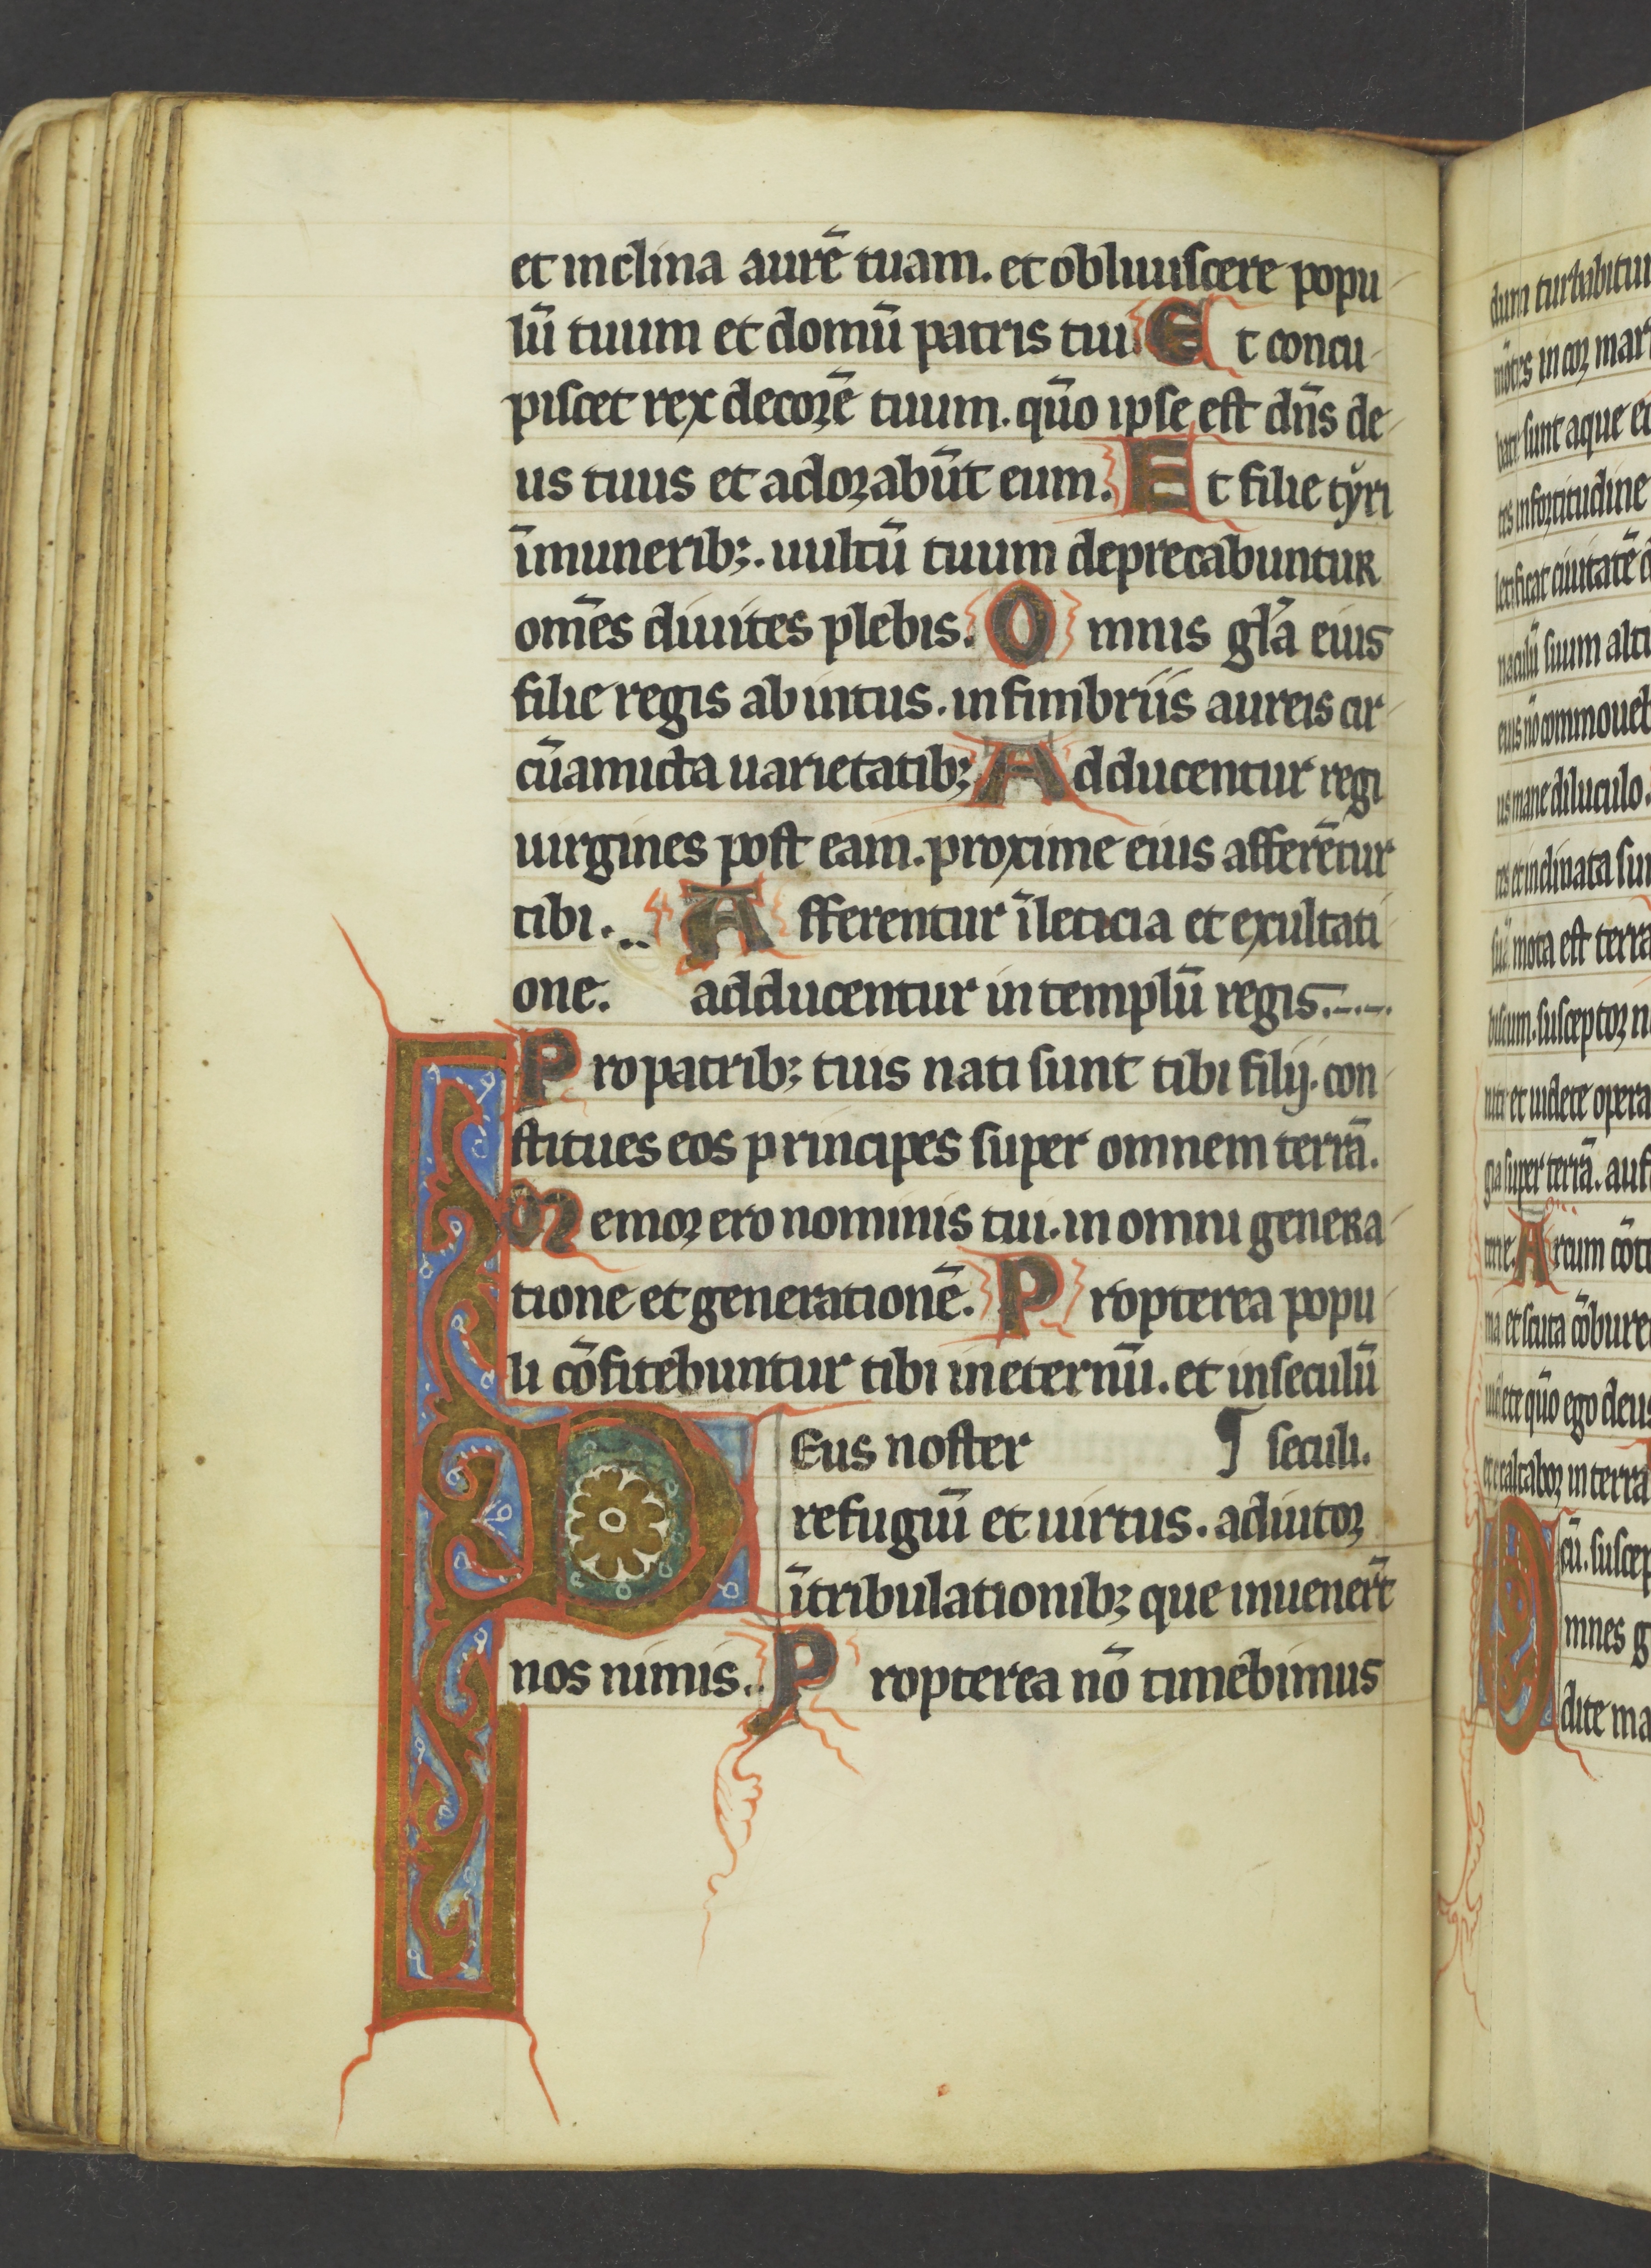 et inclina aurē tuam. et obliuiscere popu
lū tuum et domū patris tui. Et concu
piscet rex decorē tuum. qūo ipse est dn̄s de
us tuus et adorabūt eum. Et filie tyri
īmunerib;. uultū tuum deprecabuntur
om̄es diuites plebis. Omnis gl̄a eius
filie regis ab intus. in fimbriis aureis cir
cūamicta uarietatib; Adducentur regi
uirgines post eam. proxime eius afferētur
tibi. Afferentur ī leticia et exultati
one. adducentur in templū regis.
Pro patrib; tuis nati sunt tibi filij. con
stitues eos principes super omnem terrā.
Memor ero nominis tui. in omni genera
tione et generationē. Propterea popu
li cōfitebuntur tibi in eternū. et in seculū
DEus noster ¶ seculi.
refugiū et uirtus. adiutor
ītribulationib; que inuenert̄
nos nimis. Propterea nō timebimus
dum turbabitur
mōtes in cor mar
sunt aque et
in fortitudine
letificat ciuitatē d
naculū suum alti
eius nō commoueb
us mane diluculo.
et inclinata sun
suā mota est terra
biscum. susceptor n
nite et uidete opera
gia super terrā. auf
Arcum cōte
ma et scuta cōbure
uidete qūo ego deus
exaltabor in terra
cū. suscep
Omnes g
dite ma